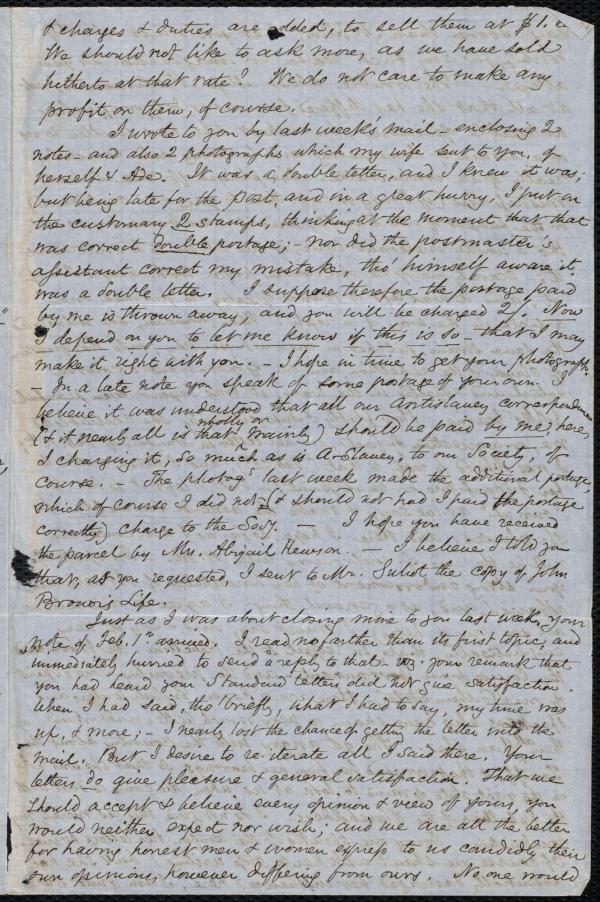 & charges & duties are added, to sell them at $1.
We should not like to ask more, as we have sold
hitherto at that rate? We do not care to make any
profit on them, of course.
I wrote to you by last week's mail - enclosing 2
notes - and also 2 photographs which my wife sent to you, of
herself & Ade. It was a double letter, and I knew it was;
but being late for the post, and in a great hurry, I put on
the customary 2 stamps, thinking at the moment that that
was correct double postage; - nor did the postmaster's
assistant correct my mistake, tho' himself aware it
was a double letter. I suppose therefore the postage paid
by me is thrown away, and you will be charged 2/. Now
I depend on you to let me know if this is so - that I may
make it right with you. I hope in time to get your photograph.
- In a late note you speak of some postage of your own. I
believe it was understood that all our Antislavery correspondence
(& it nearly all is that wholly or mainly) should be paid by me here,
I charging it, so much as is A. Slavery, to our Society, of
course. - The photogs last week made the additional postage,
which of course I did not (& should not had I paid the postage
correctly) charge to the Socy. - I hope you have received
the parcel by Mrs. Abigail Hewson. - I believe I told you
that, as you requested, I sent to Mr. Suliot the copy of John
Brown's Life.
Just as I was about closing mine to you last week, your
note of Feb. 1st arrived. I read no farther than its first topic, and
immediately hurried to send a reply to that - viz. your remark that
you had heard your Standard letters did not give satisfaction.
When I had said, tho' briefly, what I had to say, my time was
up, & more; - I nearly lost the chance of getting the letter into the
mail. But I desire to re-iterate all I said there. Your
letters do give pleasure & general satisfaction. That we
should accept & believe every opinion & view of yours, you
would neither expect nor wish; and we are all the better
for having honest men & women express to us candidly their
own opinions, however differing from ours. No one would